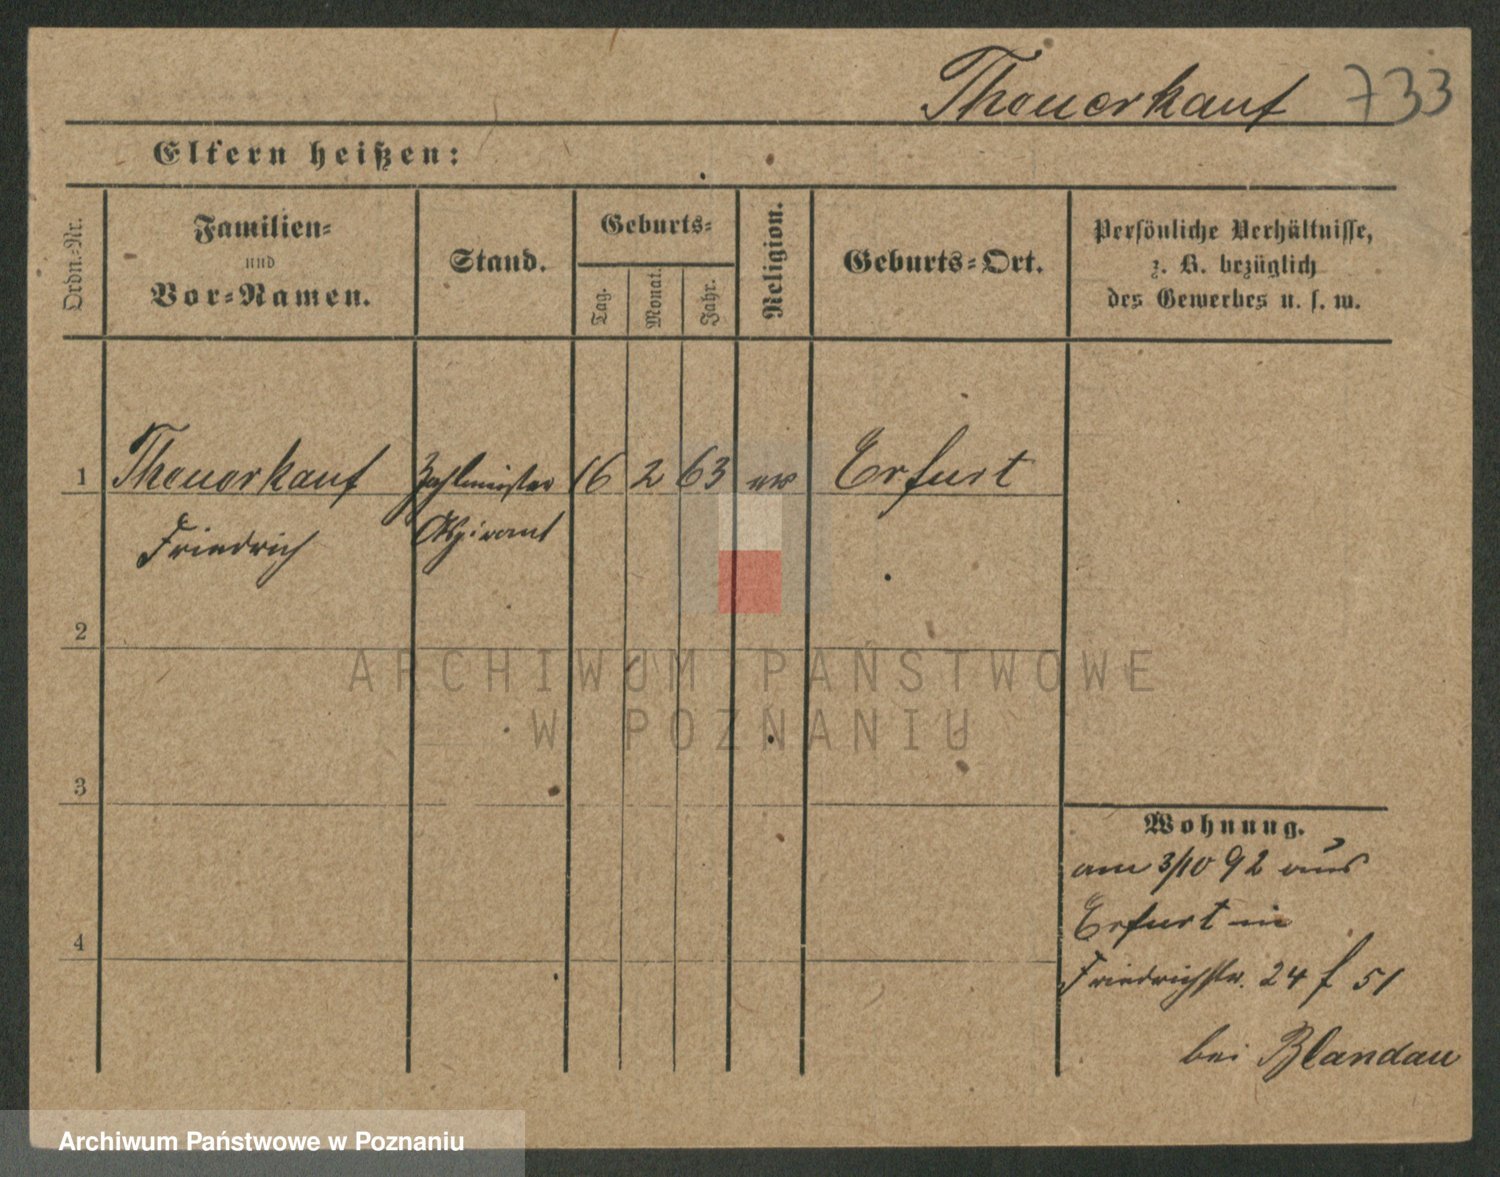 Theuerkauf 733
Eltern heißen:
Ordn.-Nr.
Familien-
und
Vor-Namen.
Stand.
Geburts-
Tag.
Monat.
Jahr.
Religion.
Geburts-Ort.
Persönliche Verhältnisse,
z. B. bezüglich
des Gewerbes u. s. w.
1 Theuerkauf Zahlmeister 16 2 63 ev Erfurt
Friedrich Aspirant
2
3
4
Wohnung.
am 3/10 92 aus
Erfurt in
Friedrichstr. 24 f 51
bei Blandau
ARCHIWUM PAŃSTWOWE
W POZNANIU
Archiwum Państwowe w Poznaniu